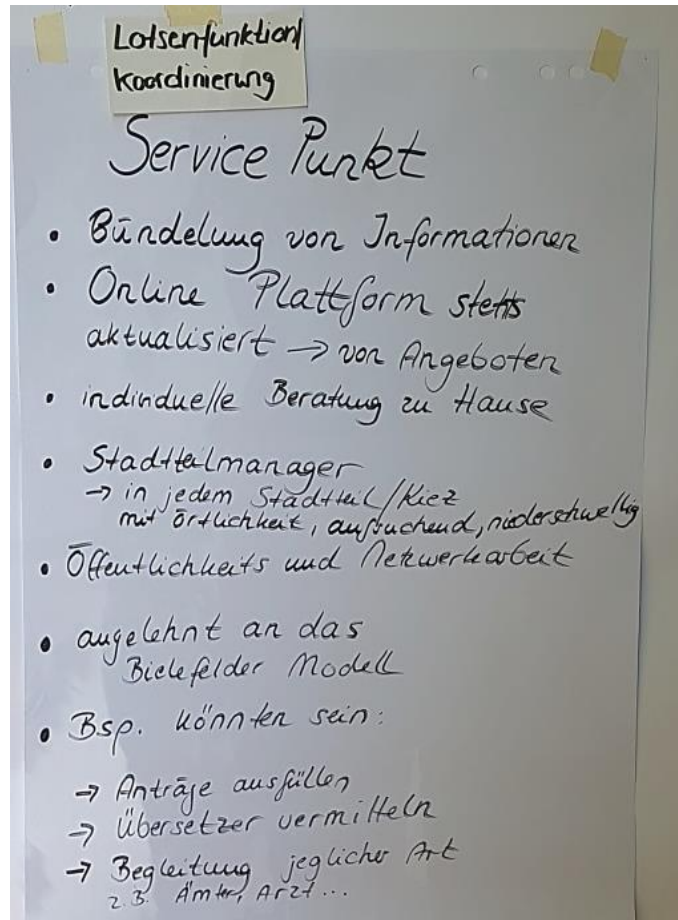 Lotsenfunktion/
Koordinierung
Service Punkt
• Bündelung von Informationen
• Online Plattform stetts
aktualisiert → von Angeboten
• indinduelle Beratung zu Hause
• Stadtteilmanager
→ in jedem Stadtteil/Kiez
mit Örtlichkeit, aufsuchend, niederschwellig
• Öffentlichkeits und Netzwerkarbeit
• angelehnt an das
Bielefelder Modell
• Bsp. könnten sein:
→ Anträge ausfüllen
→ Übersetzer vermitteln
→ Begleitung jeglicher Art
z.B. Ämter, Arzt...